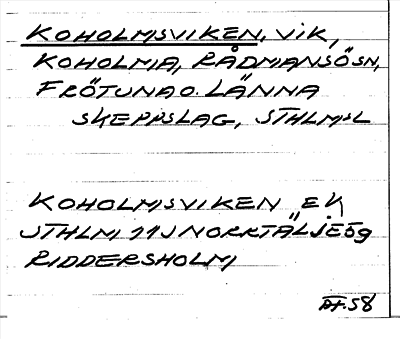 KOHOLMSVIKEN, VIK,
KOHOLMA, RÅDMANSÖ SN,
FRÖTUNA O. LÄNNA
SKEPPSLAG, STHLMSL
KOHOLMSVIKEN EK
STHLM 11J NORRTÄLJE ÖG
RIDDERSHOLM
58